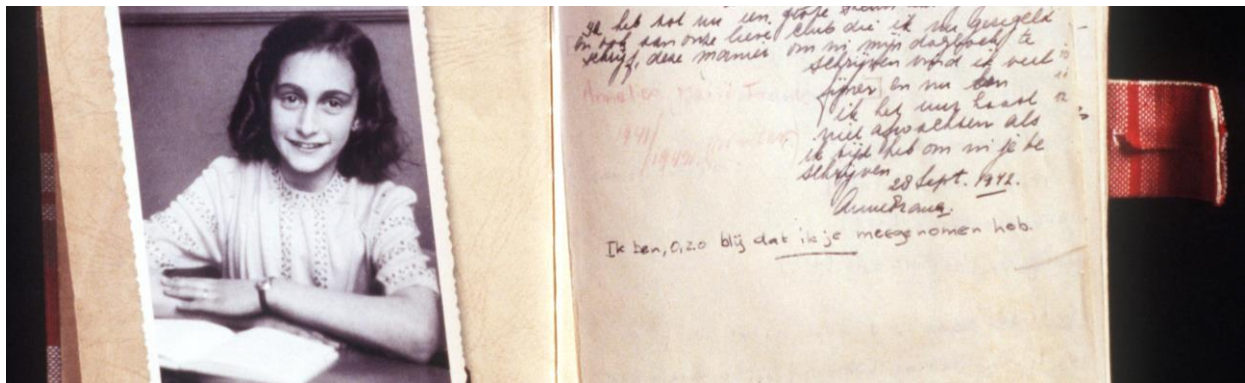 Ik heb tot nu een grote steun
en ook aan onze lieve club die ik nu geregeld
schrijf, deze manier om in mijn dagboek te
schrijven vind ik veel
fijner en nu kan
ik het uur haast
niet afwachten als
ik tijd heb om in je te
schrijven
28 Sept. 1942.
Anne Frank.
Ik ben, o, zo blij dat ik je meegenomen heb.
Annelies Marie Frank
1941/
1942